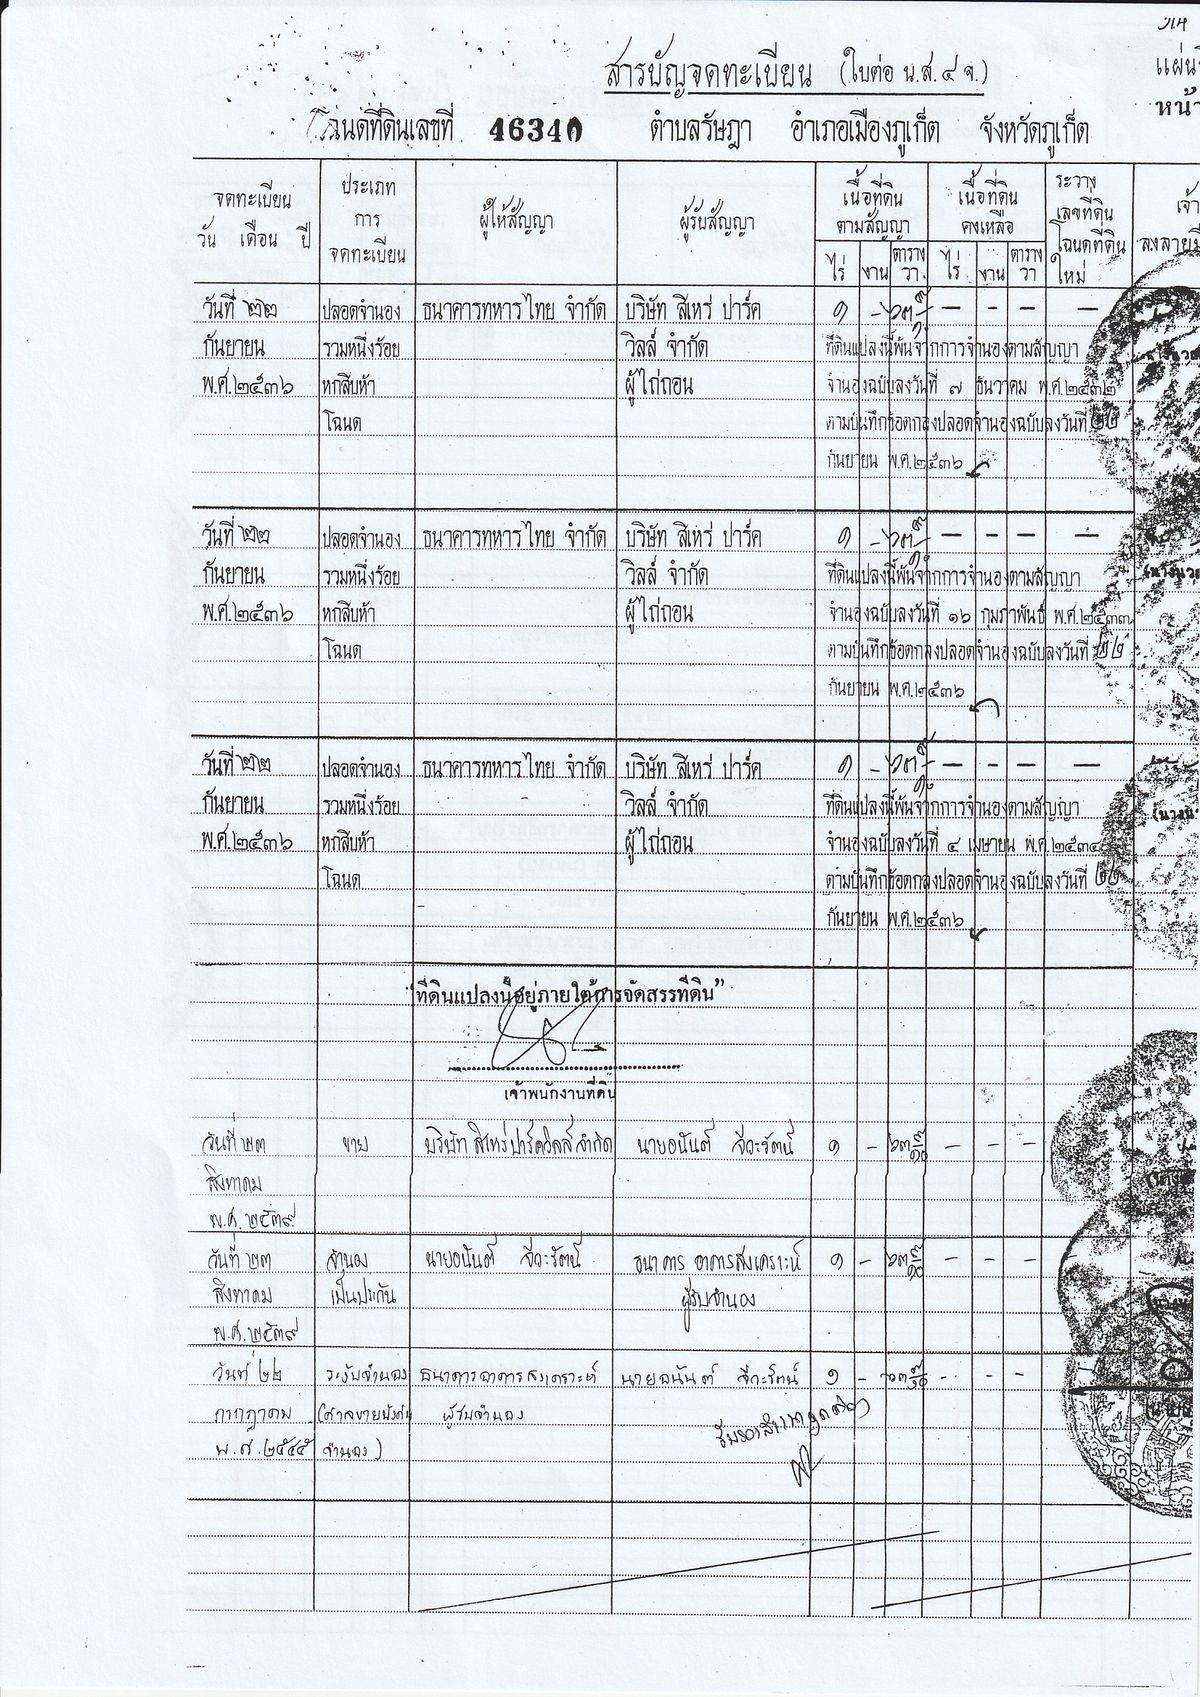 สารบัญจดทะเบียน (ใบต่อ น.ส.๔ จ.)
แผ่น
หน้า
โฉนดที่ดินเลขที่ 46340 ตำบลรัษฎา อำเภอเมืองภูเก็ต จังหวัดภูเก็ต
จดทะเบียน
วัน เดือน ปี
ประเภท
การ
จดทะเบียน
ผู้ให้สัญญา
ผู้รับสัญญา
เนื้อที่ดิน
ตามสัญญา
ไร่ งาน ตาราง
วา
เนื้อที่ดิน
คงเหลือ
ไร่ งาน ตาราง
วา
ระวาง
เลขที่ดิน
โฉนดที่ดิน
ใหม่
เจ้า
ลงลายมื
วันที่ ๒๒ ปลอดจำนอง ธนาคารทหารไทย จำกัด บริษัท สิเหร่ ปาร์ค ๑ - ๖๓ ๓/๑๐ — — — —
กันยายน รวมหนึ่งร้อย วิลล์ จำกัด ที่ดินแปลงนี้พ้นจากการจำนองตามสัญญา
พ.ศ.๒๕๓๖ หกสิบห้า ผู้ไถ่ถอน จำนองฉบับลงวันที่ ๗ ธันวาคม พ.ศ.๒๕๓๒
โฉนด ตามบันทึกข้อตกลงปลอดจำนองฉบับลงวันที่ ๒๒
กันยายน พ.ศ.๒๕๓๖
วันที่ ๒๒ ปลอดจำนอง ธนาคารทหารไทย จำกัด บริษัท สิเหร่ ปาร์ค ๑ - ๖๓ ๓/๑๐ — — — —
กันยายน รวมหนึ่งร้อย วิลล์ จำกัด ที่ดินแปลงนี้พ้นจากการจำนองตามสัญญา
พ.ศ.๒๕๓๖ หกสิบห้า ผู้ไถ่ถอน จำนองฉบับลงวันที่ ๑๖ กุมภาพันธ์ พ.ศ.๒๕๓๓
โฉนด ตามบันทึกข้อตกลงปลอดจำนองฉบับลงวันที่ ๒๒
กันยายน พ.ศ.๒๕๓๖
วันที่ ๒๒ ปลอดจำนอง ธนาคารทหารไทย จำกัด บริษัท สิเหร่ ปาร์ค ๑ - ๖๓ ๓/๑๐ — — — —
กันยายน รวมหนึ่งร้อย วิลล์ จำกัด ที่ดินแปลงนี้พ้นจากการจำนองตามสัญญา
พ.ศ.๒๕๓๖ หกสิบห้า ผู้ไถ่ถอน จำนองฉบับลงวันที่ ๔ เมษายน พ.ศ.๒๕๓๔
โฉนด ตามบันทึกข้อตกลงปลอดจำนองฉบับลงวันที่ ๒๒
กันยายน พ.ศ.๒๕๓๖
"ที่ดินแปลงนี้อยู่ภายใต้การจัดสรรที่ดิน"
เจ้าพนักงานที่ดิน
วันที่ ๒๓ ขาย บริษัท สิเหร่ปาร์ควิลล์จำกัด นายอนันต์ จีวะรัตน์ ๑ - ๖๓ ๓/๑๐ - - - -
สิงหาคม
พ.ศ.๒๕๓๙
วันที่ ๒๓ จำนอง นายอนันต์ จีวะรัตน์ ธนาคาร อาคารสงเคราะห์ ๑ - ๖๓ ๓/๑๐ - - - -
สิงหาคม เป็นประกัน ผู้รับจำนอง
พ.ศ.๒๕๓๙
วันที่ ๒๒ ระงับจำนอง ธนาคารอาคารสงเคราะห์ นายอนันต์ จีวะรัตน์ ๑ - ๖๓ ๓/๑๐ - - -
กรกฎาคม (ศาลขายบังคับ ผู้รับจำนอง
พ.ศ.๒๕๔๕ จำนอง)